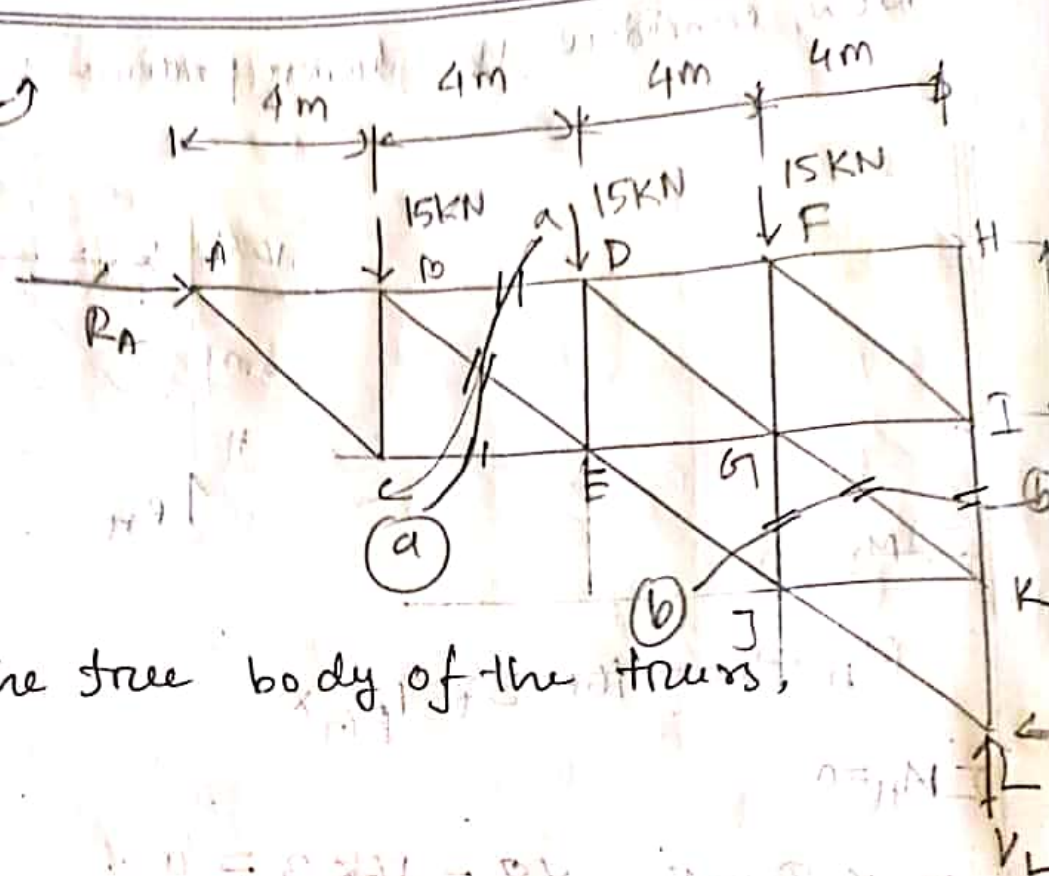 4m 4m 4m 4m
15KN 15KN 15KN
a
A B D F H
RA
I
E G
a
b
J K
he free body of the truss,
L
VL